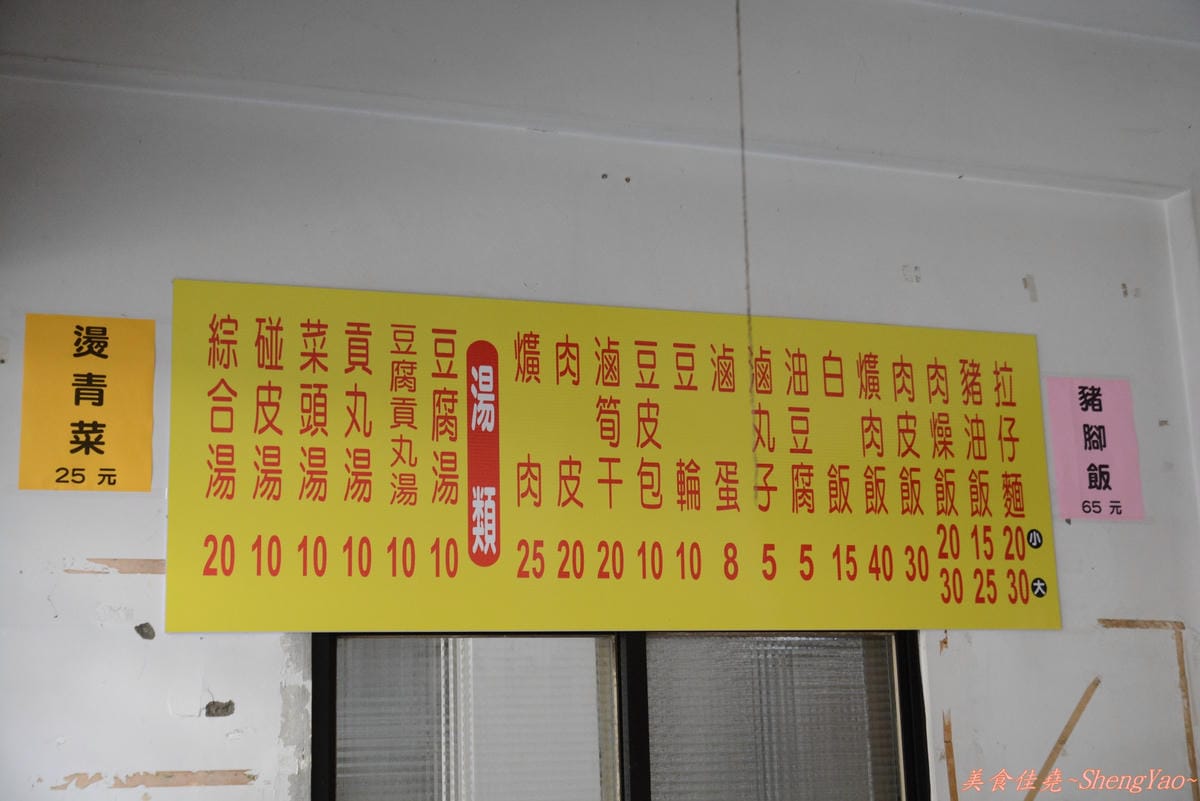 豬腳飯
65元
拉仔麵 小20 大30
豬油飯 15 25
肉燥飯 20 30
肉皮飯 30
爌肉飯 40
白飯 15
油豆腐 5
滷丸子 5
滷蛋 8
豆輪 10
豆皮包 10
滷筍干 20
肉皮 20
爌肉 25
湯類
豆腐湯 10
豆腐貢丸湯 10
貢丸湯 10
菜頭湯 10
碰皮湯 10
綜合湯 20
燙青菜
25元
美食佳堯~ShengYao~